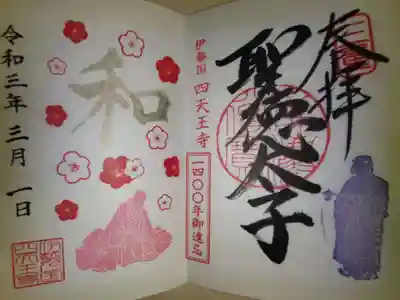 奉拝
聖徳太子
伊勢国 四天王寺
一四〇〇年御遠忌
和
令和三年三月一日